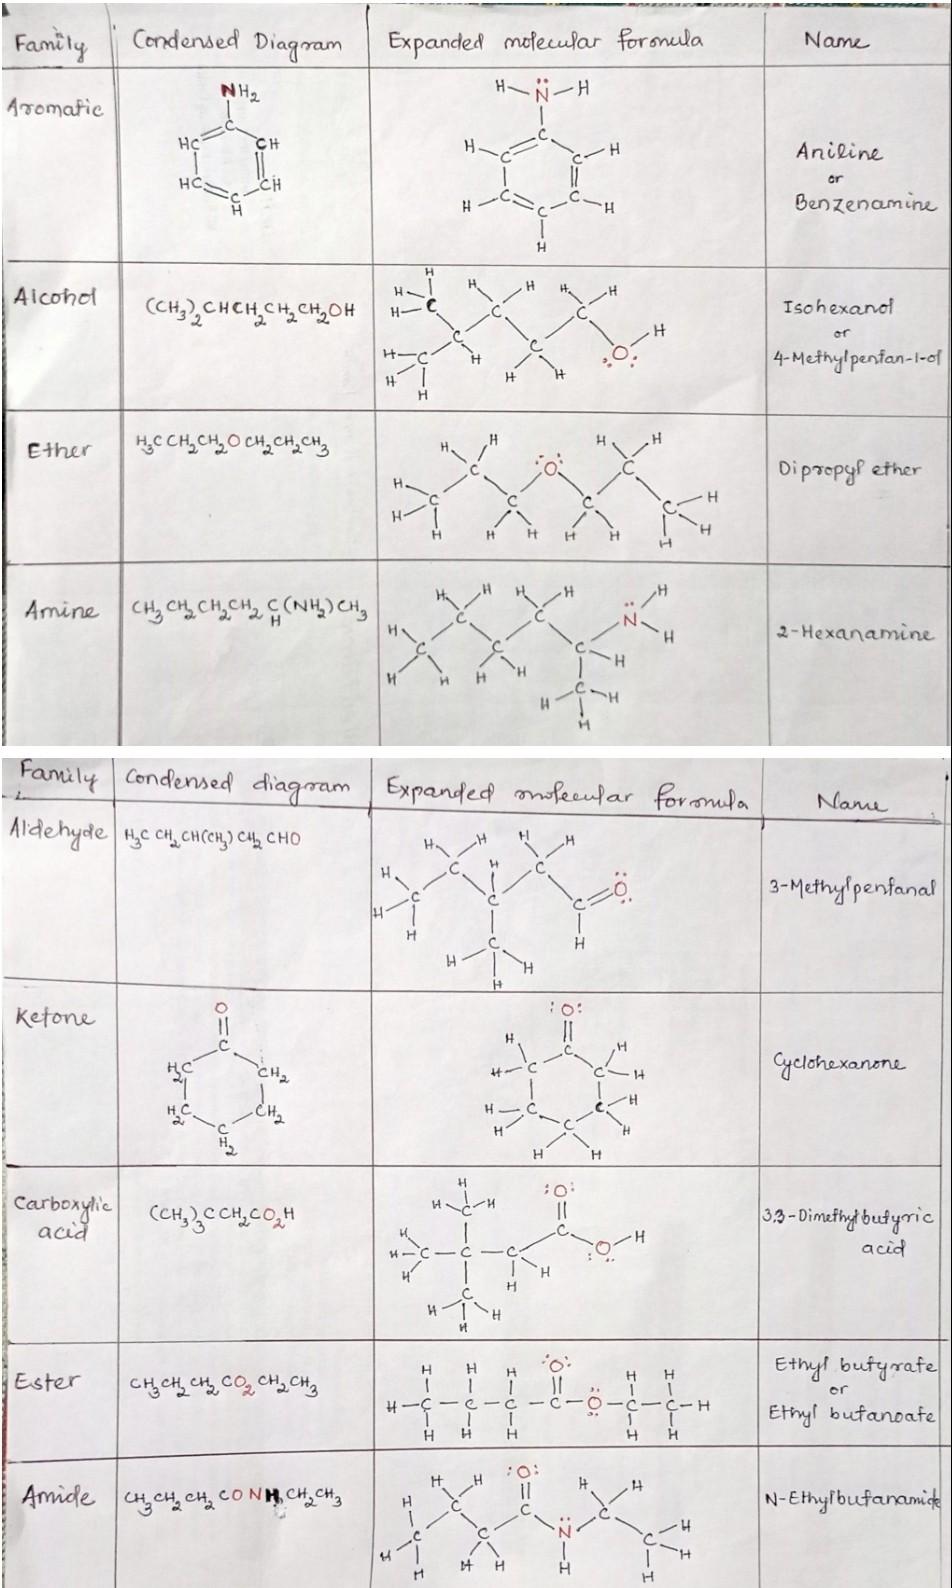 Family Condensed Diagram Expanded molecular formula Name
Aromatic
NH2
C
HC CH
HC CH
C
H
H N H
C
H C C H
H C C H
C
H
Aniline
or
Benzenamine
Alcohol
(CH3)2CHCH2CH2CH2OH
H
H C H H H H
H C C H
C C O
H C H
H H H
H
Isohexanol
or
4-Methylpentan-1-ol
Ether
H3CCH2CH2OCH2CH2CH3
H H H H
H C O C
H C C C C H
H H H H H H H
Dipropyl ether
Amine
CH3CH2CH2CH2CH(NH2)CH3
H H H H H
H C C N
C C C H
H H H H H
H C H
H
2-Hexanamine
Family Condensed diagram Expanded molecular formula Name
Aldehyde
H3CCH2CH(CH3)CH2CHO
H H H H
H C H C O
H C C C
H H
H C H
H
3-Methylpentanal
Ketone
O
C
H2C CH2
H2C CH2
C
H2
O
H C H
H C C H
H C C H
H C H
H H
Cyclohexanone
Carboxylic
acid
(CH3)3CCH2CO2H
H
H C H O
H C H
H C C C O
H H H
H C H
H
3,3-Dimethylbutyric
acid
Ester
CH3CH2CH2CO2CH2CH3
H H H O H H
H C C C C O C C H
H H H H H
Ethyl butyrate
or
Ethyl butanoate
Amide
CH3CH2CH2CONHCH2CH3
H H O H H
H C C C
C C N C H
H H H H H H H
N-Ethylbutanamide